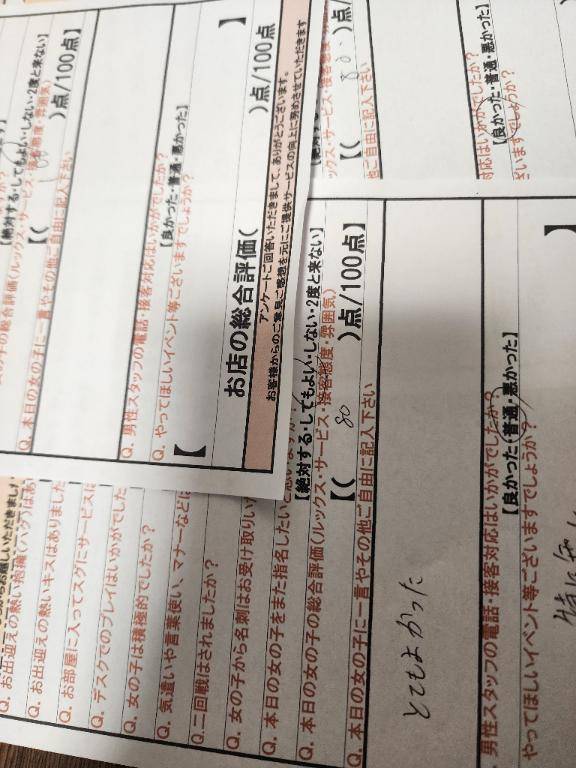 【絶対する・してもよい・しない・2度と来ない】
の総合評価(ルックス・サービス・接客態度・雰囲気)
【(
)点/100点】
本日の女の子に一言やその他ご自由に記入下さい
Q. 男性スタッフの電話・接客対応はいかがでしたか?
【良かった・普通・悪かった】
Q. やってほしいイベント等ございますでしょうか?
【
】
お店の総合評価(
)点/100点
アンケートご回答いただきまして、ありがとうございます。
お客様からのご意見ご感想を元にご提供サービスの向上に努めさせていただきます
Q. お出迎えの熱い抱擁(ハグ)はあ
Q. お出迎えの熱いキスはありました
Q. お部屋に入ってスグにサービスに
Q. デスクでのプレイはいかがでした
Q. 女の子は積極的でしたか?
Q. 気遣いや言葉使い、マナーなどに
Q. 二回戦はされましたか?
Q. 女の子から名刺はお受け取りい
Q. 本日の女の子をまた指名したいと思いますか
【絶対する・してもよい・しない・2度と来ない】
Q. 本日の女の子の総合評価(ルックス・サービス・接客態度・雰囲気)
【( 80 )点/100点】
Q. 本日の女の子に一言やその他ご自由に記入下さい
とてもよかった
Q. 男性スタッフの電話・接客対応はいかがでしたか?
【良かった・普通・悪かった】
やってほしいイベント等ございますでしょうか?
】
【(
)点/
ご自由に記入下さい
対応はいかがでしたか?
【良かった・普通・悪かった】
ざいますでしょうか?